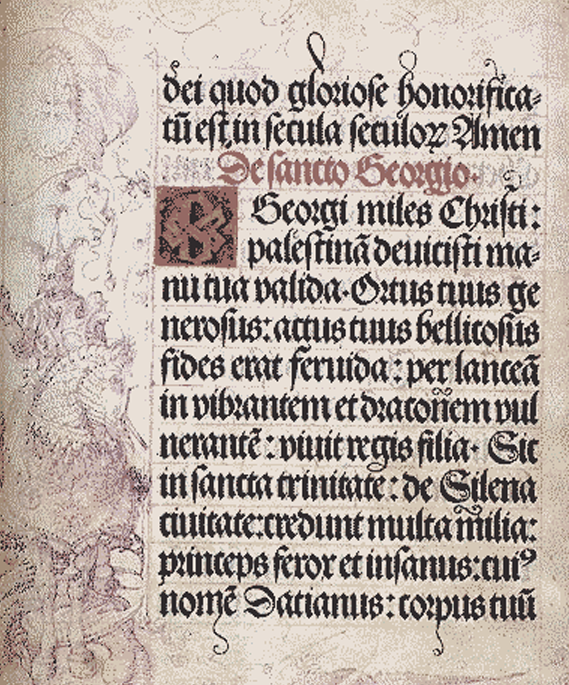 dei quod gloriose honorifica-
tū est, in secula seculoꝝ Amen
De sancto Georgio.
Georgi miles Christi:
palestinā deuicisti ma-
nu tua valida. Ortus tuus ge
nerosus: actus tuus bellicosus
fides erat feruida: per lanceā
in vibrantem et draconem vul
nerantē: viuit regis filia. Sit
in sancta trinitate: de Silena
ciuitate: credunt multa milia:
princeps ferox et insanus: cuiꝰ
nomē Datianus: corpus tuū